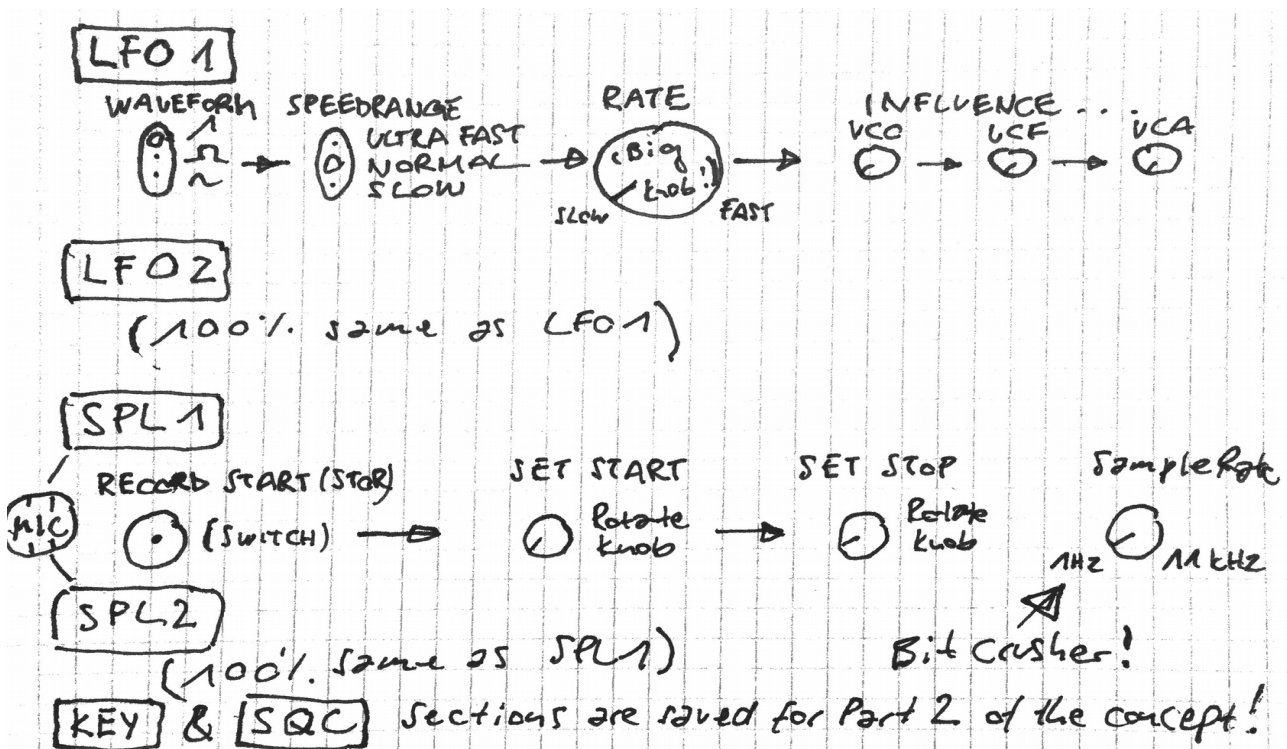 LFO 1
WAVEFORM SPEEDRANGE RATE INFLUENCE ....
ULTRA FAST
NORMAL
SLOW
(Big
knob!)
SLOW FAST
VCO VCF VCA
LFO2
(100% same as LFO1)
SPL 1
MIC
RECORD START (STOP) SET START SET STOP SampleRate
(SWITCH) Rotate
knob
Rotate
knob
1Hz 11 kHz
SPL2
(100% same as SPL1) Bit Crusher!
KEY & SQC sections are saved for Part 2 of the concept!